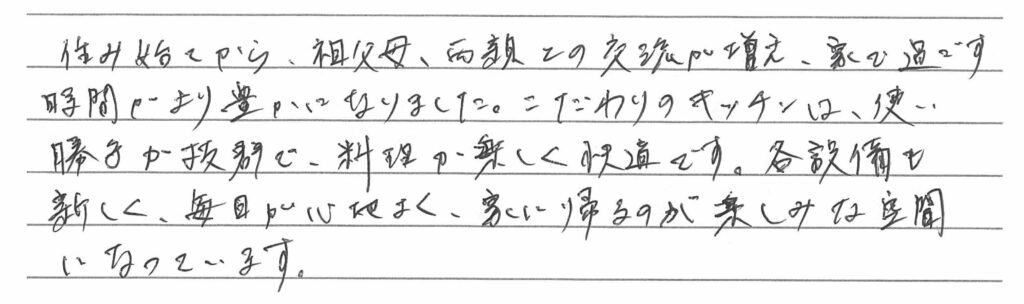 住み始めてから、祖父母、両親との交流が増え、家で過ごす
時間がより豊かになりました。こだわりのキッチンは、使い
勝手が抜群で、料理が楽しく快適です。各設備も
新しく、毎日が心地よく、家に帰るのが楽しみな空間
になっています。